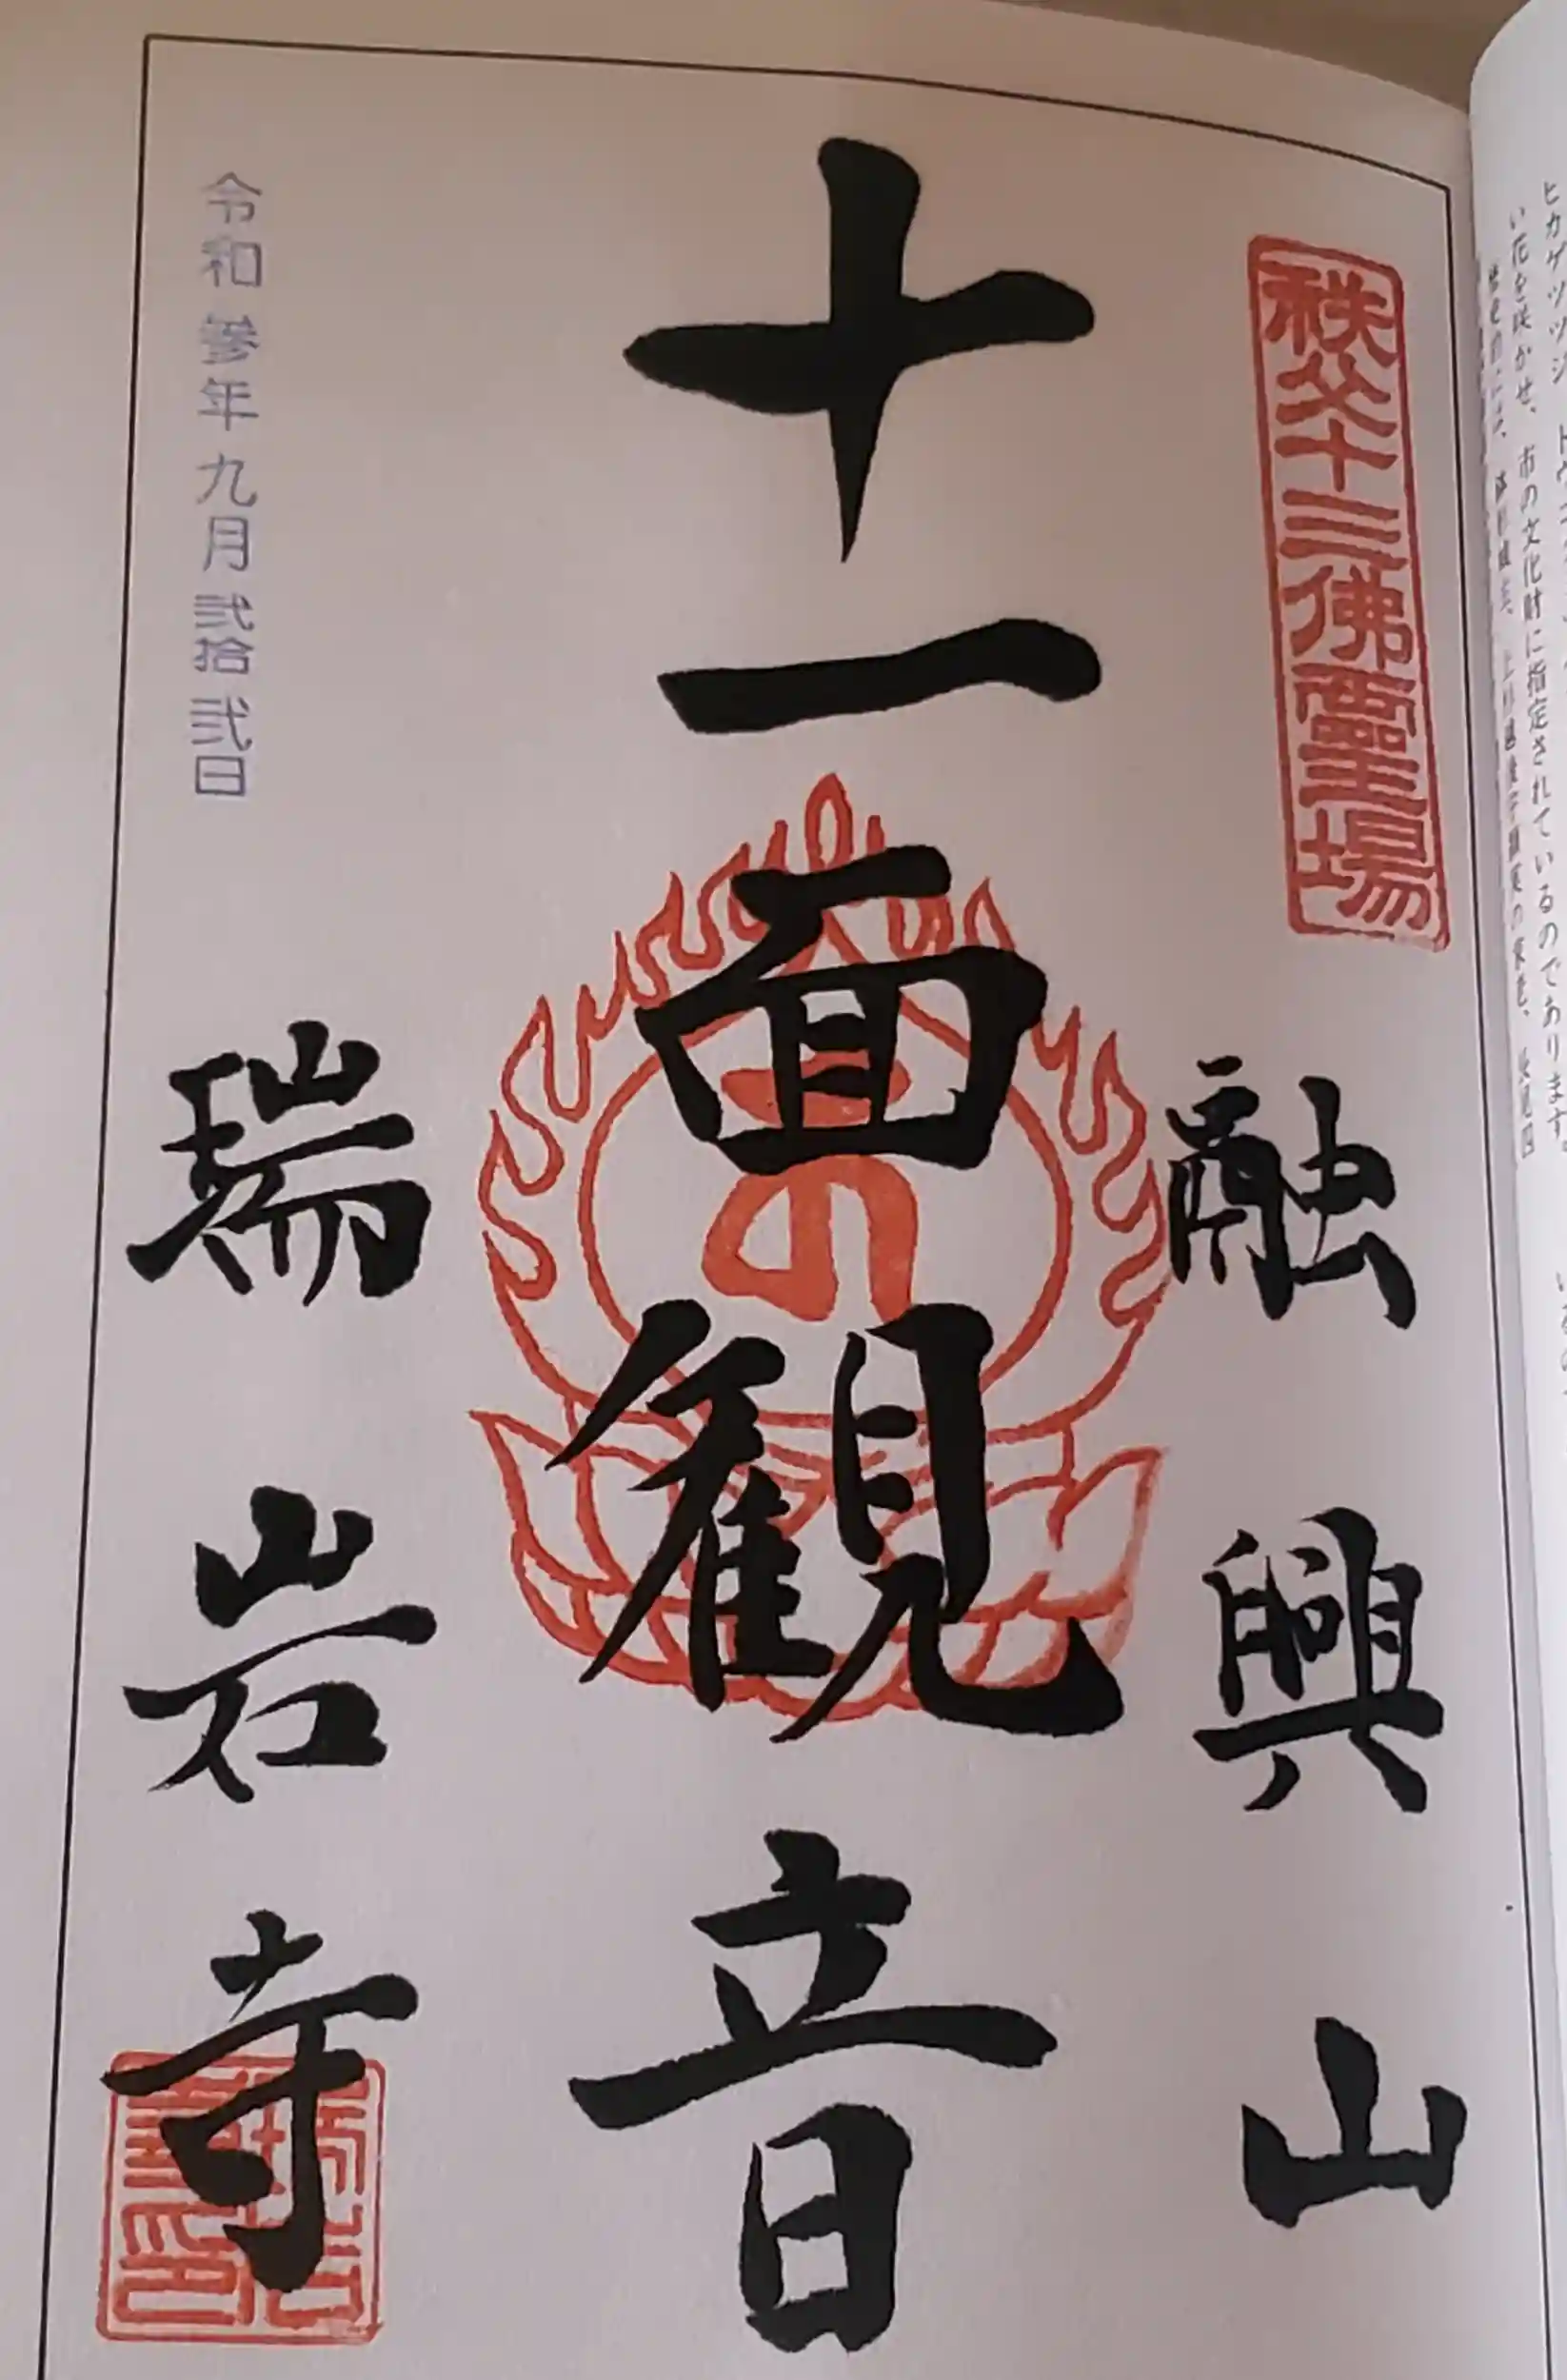 ヒカゲツツジ
い花を咲かせ、市の文化財に指定されているのであります。
秩父十三佛霊場
融興山
十一面観音
令和参年九月弐拾弐日
瑞岩寺